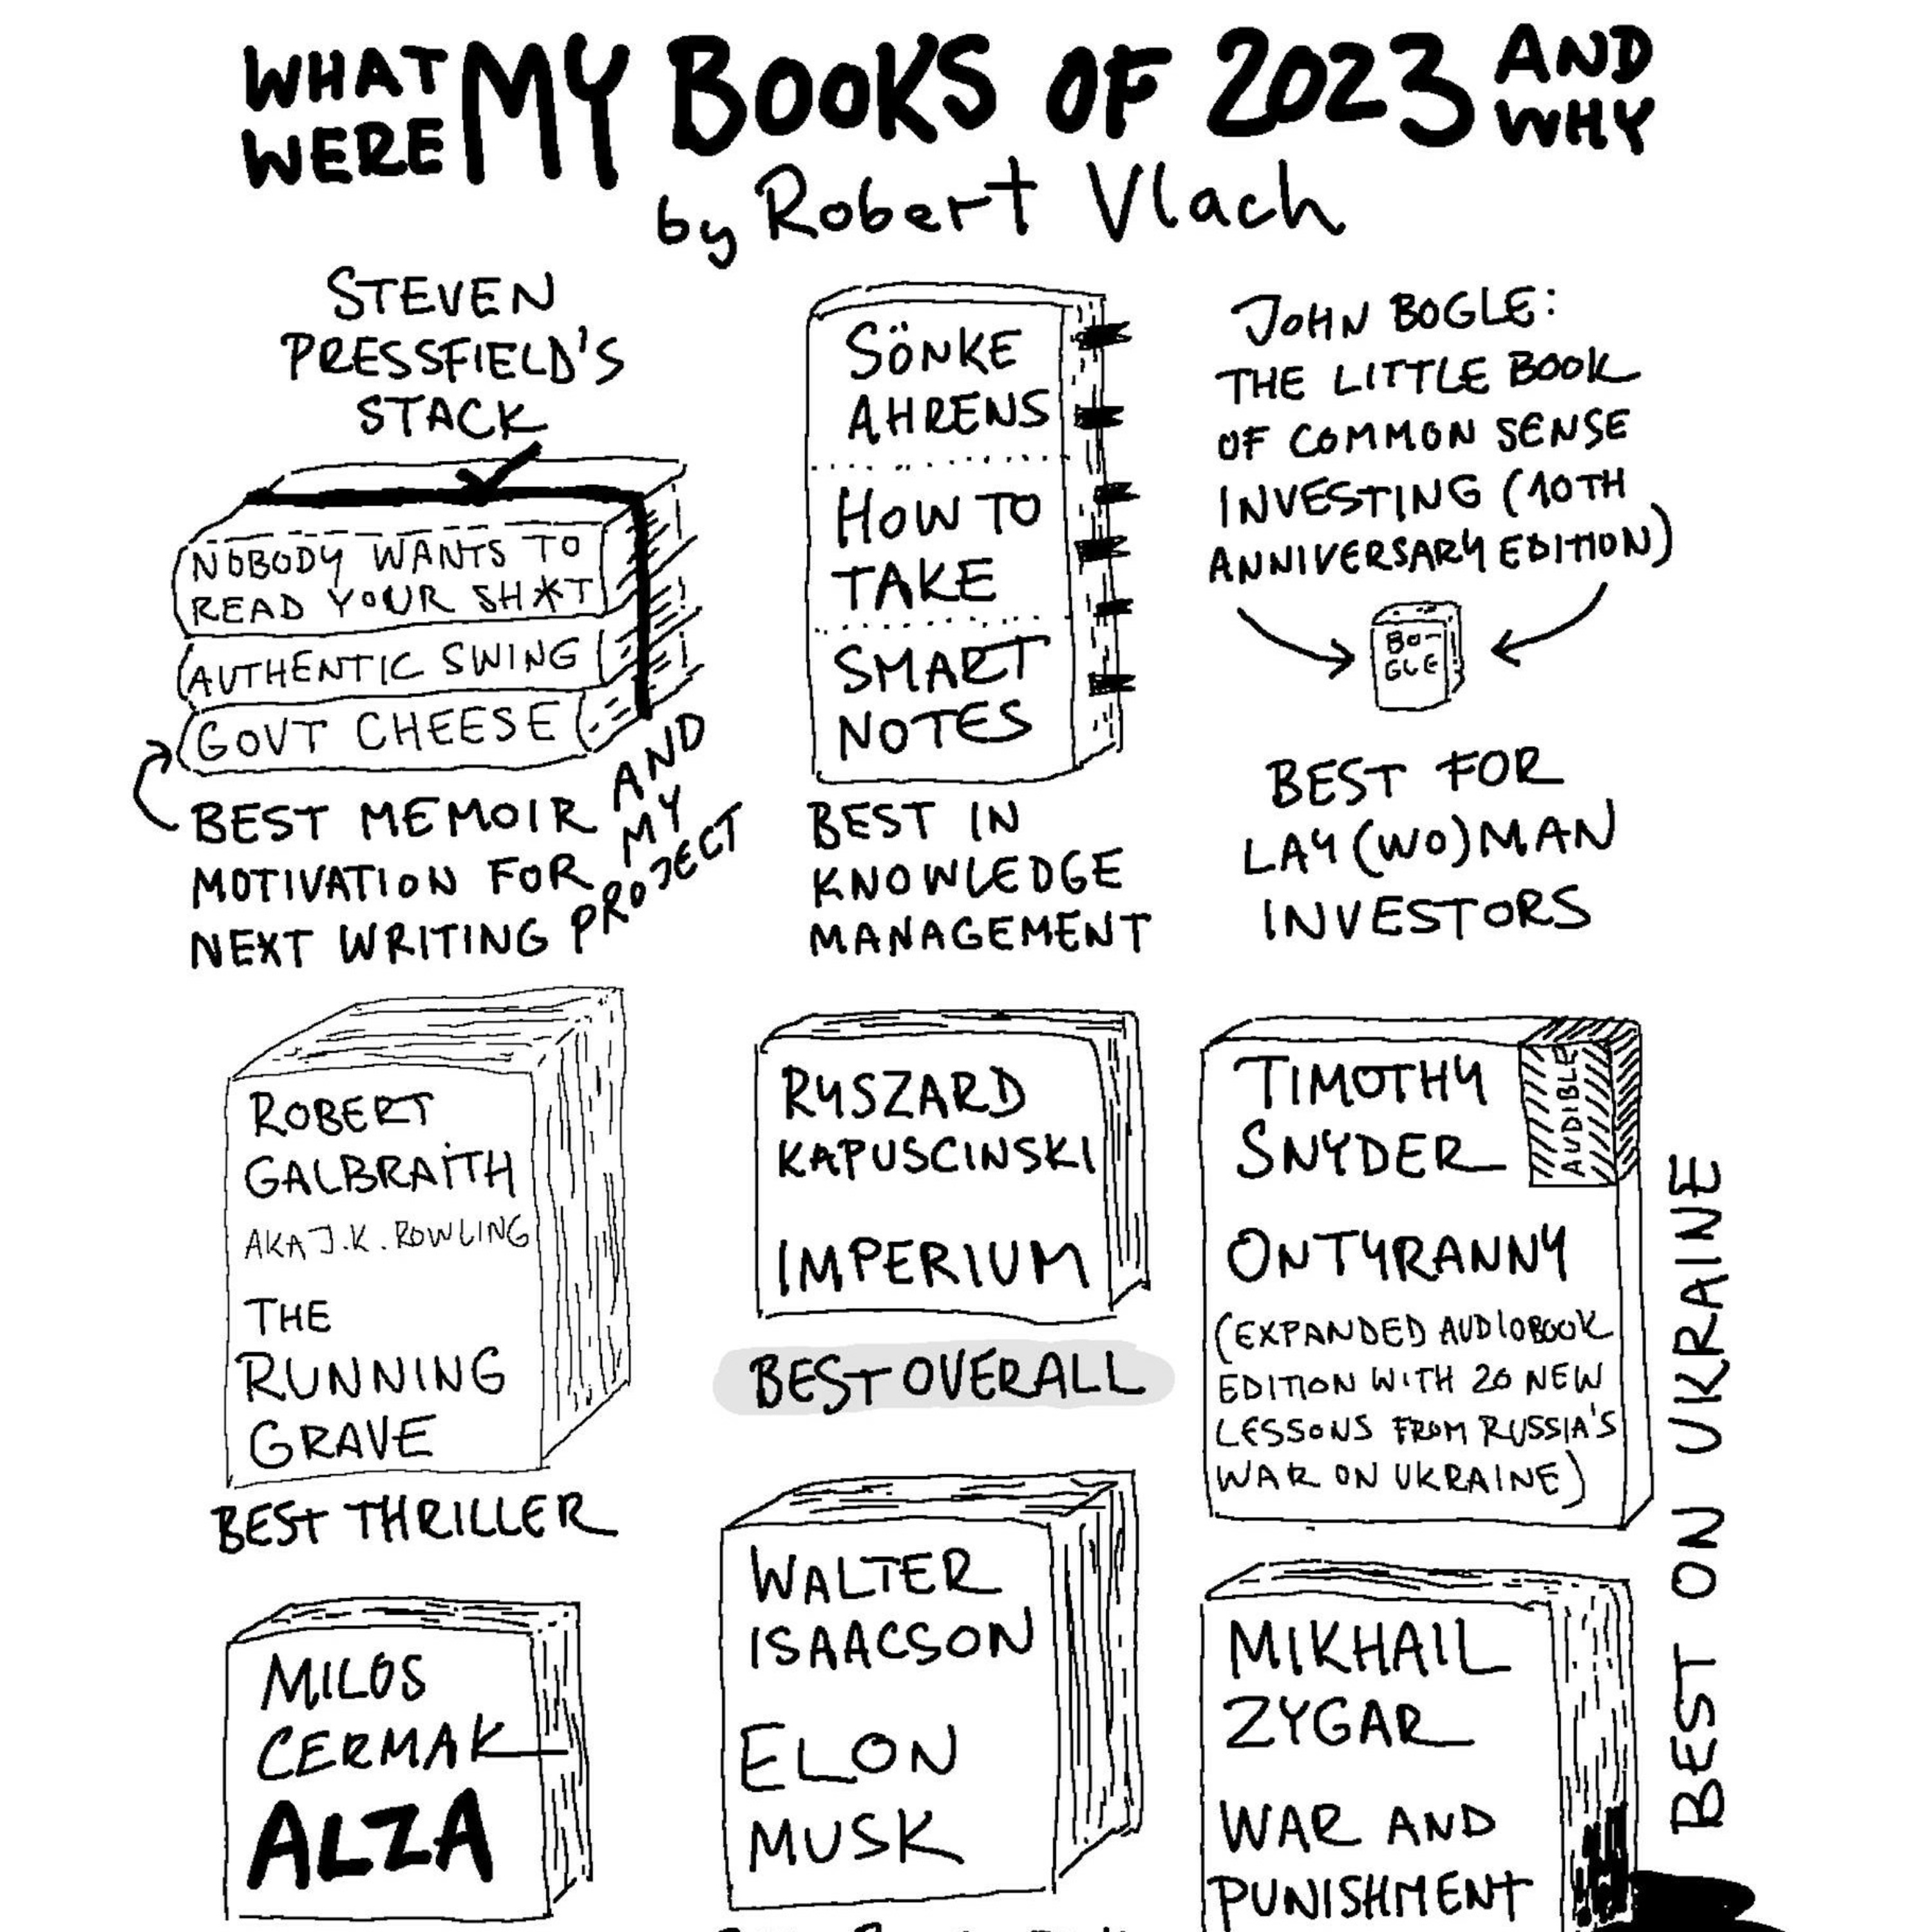 WHAT WERE MY BOOKS OF 2023 AND WHY
by Robert Vlach
STEVEN
PRESSFIELD'S
STACK
NOBODY WANTS TO
READ YOUR SH*T
AUTHENTIC SWING
GOVT CHEESE
BEST MEMOIR AND
MOTIVATION FOR MY
NEXT WRITING PROJECT
SÖNKE
AHRENS
HOW TO
TAKE
SMART
NOTES
BEST IN
KNOWLEDGE
MANAGEMENT
JOHN BOGLE:
THE LITTLE BOOK
OF COMMON SENSE
INVESTING (10TH
ANNIVERSARY EDITION)
BO-
GLE
BEST FOR
LAY(WO)MAN
INVESTORS
ROBERT
GALBRAITH
AKA J.K. ROWLING
THE
RUNNING
GRAVE
BEST THRILLER
RYSZARD
KAPUSCINSKI
IMPERIUM
BEST OVERALL
TIMOTHY
SNYDER
AUDIBLE
ON TYRANNY
(EXPANDED AUDIOBOOK
EDITION WITH 20 NEW
LESSONS FROM RUSSIA'S
WAR ON UKRAINE)
BEST ON UKRAINE
MILOS
CERMAK
ALZA
WALTER
ISAACSON
ELON
MUSK
MIKHAIL
ZYGAR
WAR AND
PUNISHMENT